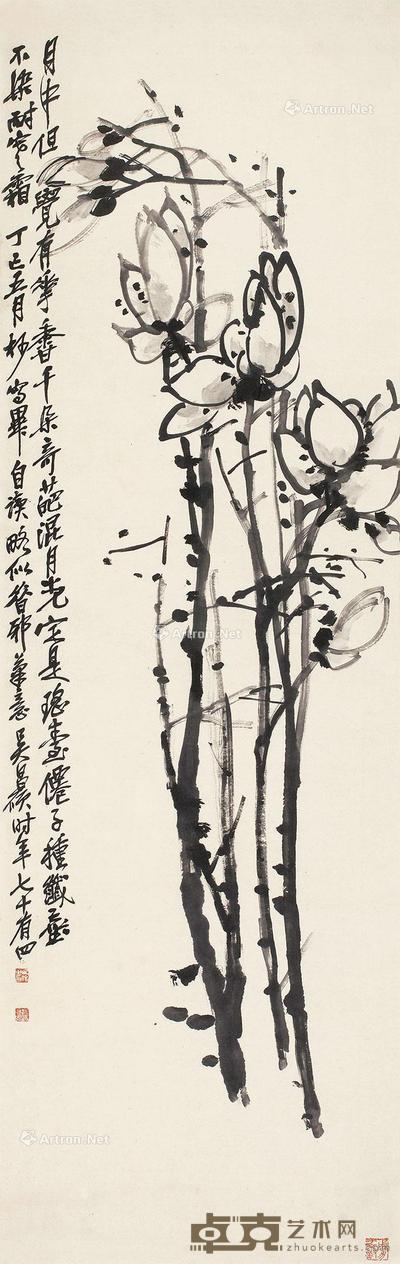 月中但觉有華香千朵奇葩混月光定是瑶臺僊子種纖塵
不染耐寒霜 丁巳五月杪写畢自读略似晉邪筆意吴昌碩时年七十有四
Artron.Net
Artron.Net
Artron.Net
卓克艺术网
zhuokearts.com